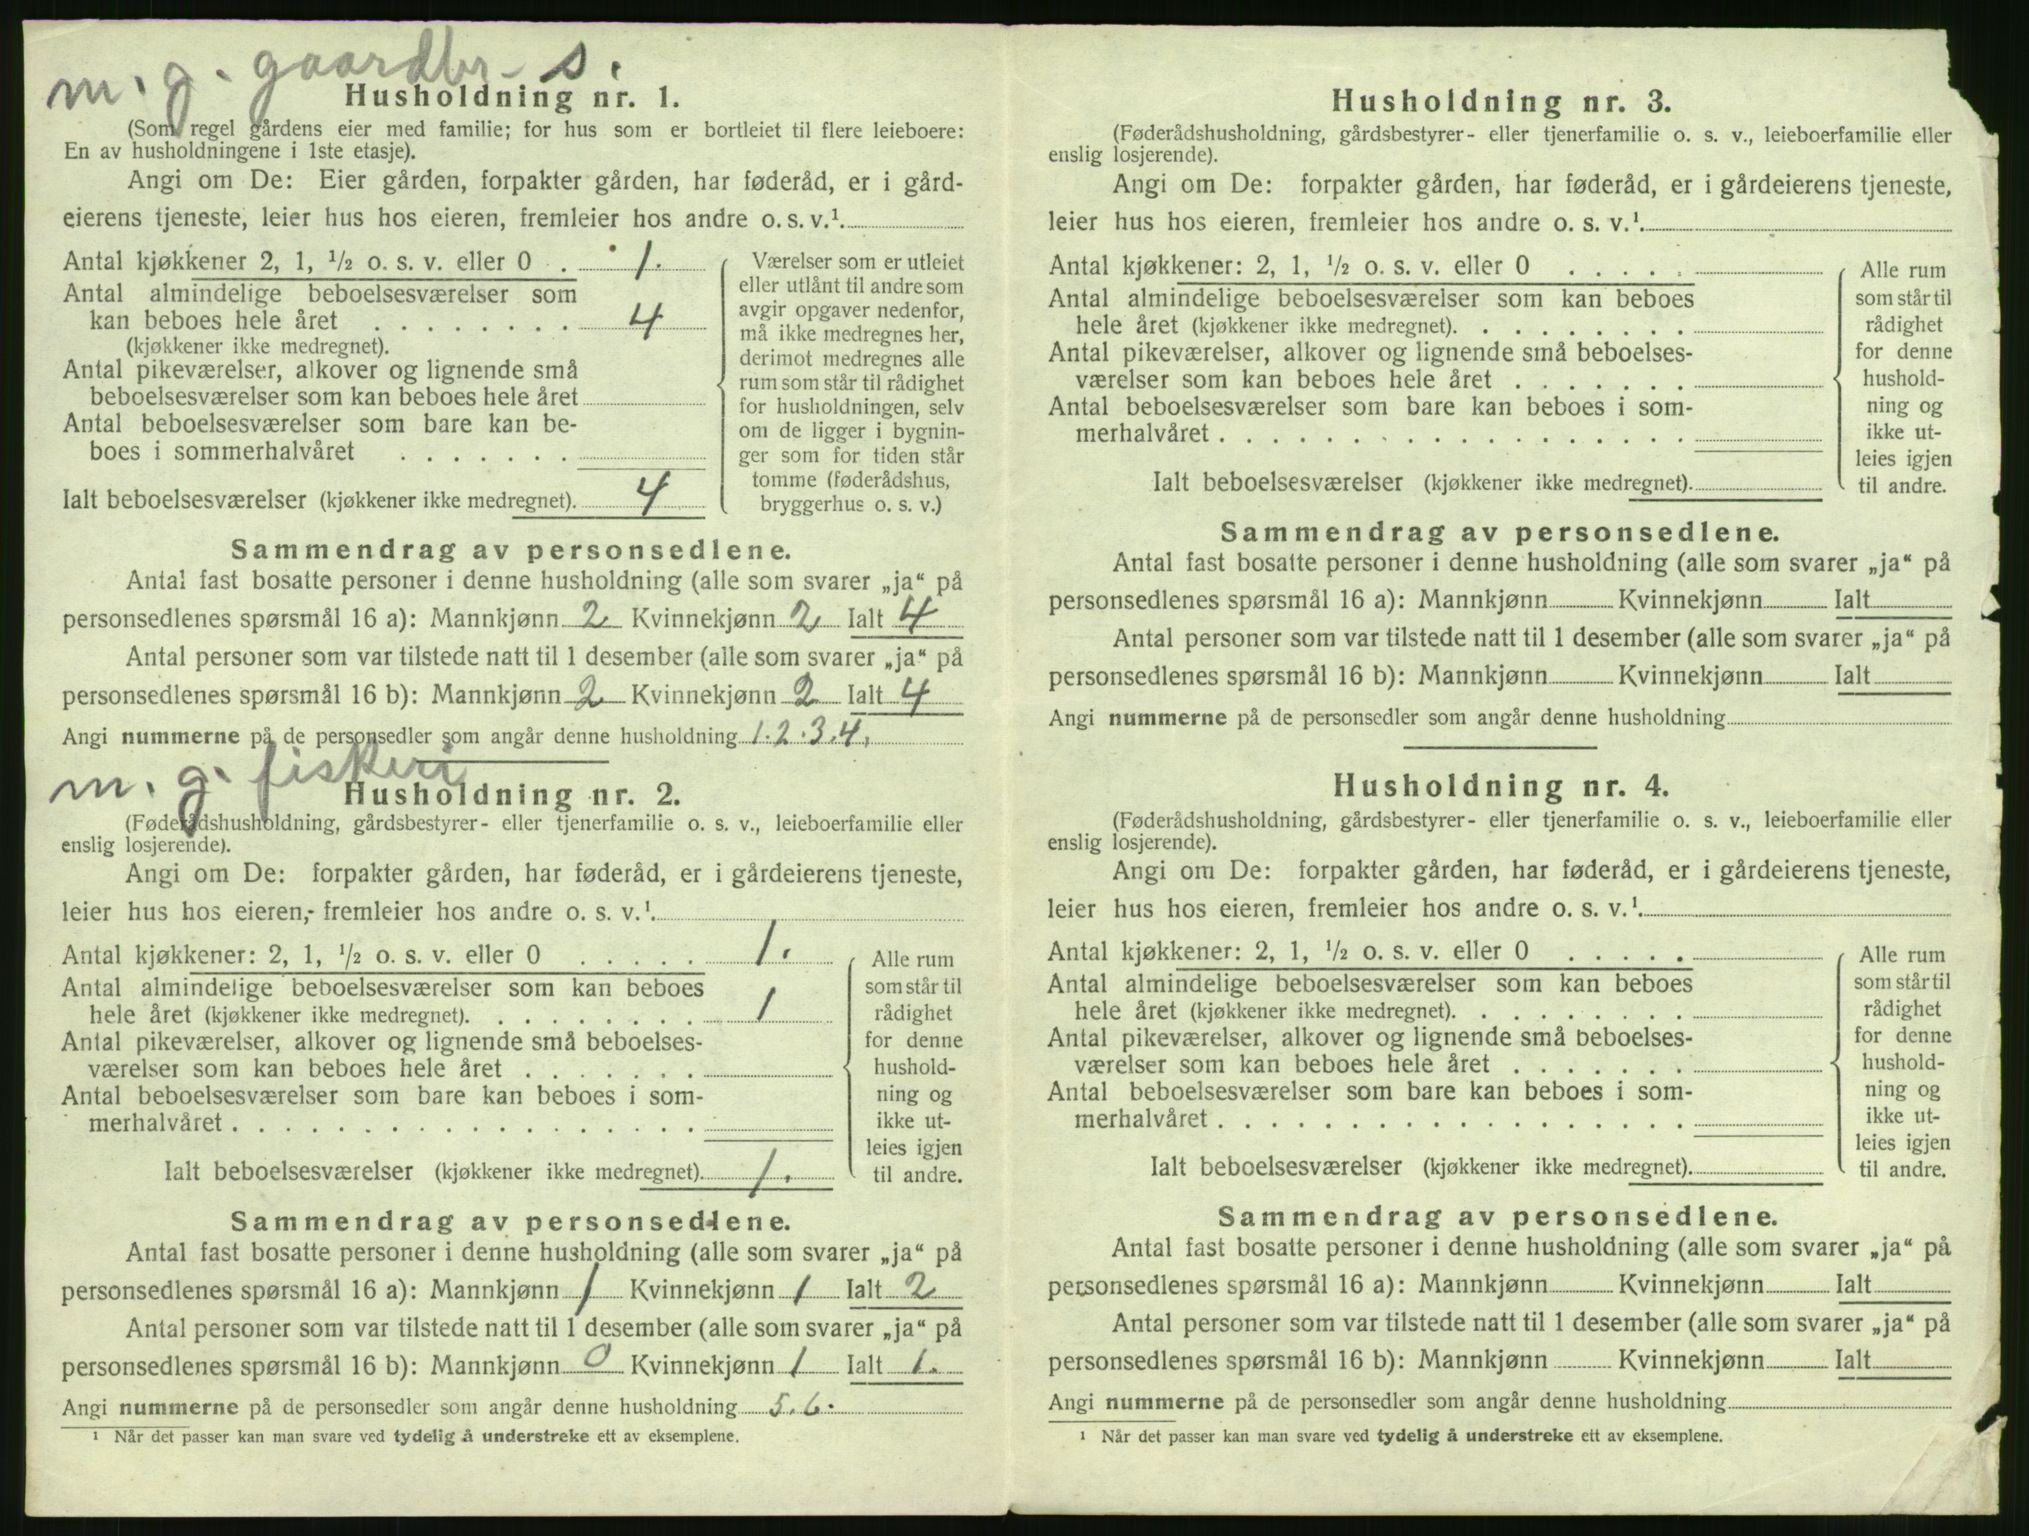 m. g. gaardbr - s.
Husholdning nr. 1.
(Som regel gårdens eier med familie; for hus som er bortleiet til flere leieboere:
En av husholdningene i 1ste etasje).
Angi om De: Eier gården, forpakter gården, har føderåd, er i gård-
eierens tjeneste, leier hus hos eieren, fremleier hos andre o. s. v.¹
Antal kjøkkener 2, 1, ½ o. s. v. eller 0 . 1.
Antal almindelige beboelsesværelser som
kan beboes hele året . . . . . . . . 4
(kjøkkener ikke medregnet).
Antal pikeværelser, alkover og lignende små
beboelsesværelser som kan beboes hele året
Antal beboelsesværelser som bare kan be-
boes i sommerhalvåret . . . . . . .
Ialt beboelsesværelser (kjøkkener ikke medregnet). 4
Værelser som er utleiet
eller utlånt til andre som
avgir opgaver nedenfor,
må ikke medregnes her,
derimot medregnes alle
rum som står til rådighet
for husholdningen, selv
om de ligger i bygnin-
ger som for tiden står
tomme (føderådshus,
bryggerhus o. s. v.)
Sammendrag av personsedlene.
Antal fast bosatte personer i denne husholdning (alle som svarer „ja“ på
personsedlenes spørsmål 16 a): Mannkjønn 2 Kvinnekjønn 2 Ialt 4
Antal personer som var tilstede natt til 1 desember (alle som svarer „ja“ på
personsedlenes spørsmål 16 b): Mannkjønn 2 Kvinnekjønn 2 Ialt 4
Angi nummerne på de personsedler som angår denne husholdning 1.2.3.4.
m. g. fiskeri
Husholdning nr. 2.
(Føderådshusholdning, gårdsbestyrer- eller tjenerfamilie o. s. v., leieboerfamilie eller
enslig losjerende).
Angi om De: forpakter gården, har føderåd, er i gårdeierens tjeneste,
leier hus hos eieren, fremleier hos andre o. s. v.¹
Antal kjøkkener: 2, 1, ½ o. s. v. eller 0 . . . . . 1.
Antal almindelige beboelsesværelser som kan beboes
hele året (kjøkkener ikke medregnet). . . . . . . . . 1
Antal pikeværelser, alkover og lignende små beboelses-
værelser som kan beboes hele året . . . . . . .
Antal beboelsesværelser som bare kan beboes i som-
merhalvåret . . . . . . . . . . . . . . . . . .
Ialt beboelsesværelser (kjøkkener ikke medregnet). 1.
Alle rum
som står til
rådighet
for denne
hushold-
ning og
ikke ut-
leies igjen
til andre.
Sammendrag av personsedlene.
Antal fast bosatte personer i denne husholdning (alle som svarer „ja“ på
personsedlenes spørsmål 16 a): Mannkjønn 1 Kvinnekjønn 1 Ialt 2
Antal personer som var tilstede natt til 1 desember (alle som svarer „ja“ på
personsedlenes spørsmål 16 b): Mannkjønn 0 Kvinnekjønn 1 Ialt 1.
Angi nummerne på de personsedler som angår denne husholdning 5.6.
¹ Når det passer kan man svare ved tydelig å understreke ett av eksemplene.
Husholdning nr. 3.
(Føderådshusholdning, gårdsbestyrer- eller tjenerfamilie o. s. v., leieboerfamilie eller
enslig losjerende).
Angi om De: forpakter gården, har føderåd, er i gårdeierens tjeneste,
leier hus hos eieren, fremleier hos andre o. s. v.¹
Antal kjøkkener: 2, 1, ½ o. s. v. eller 0 . . . . .
Antal almindelige beboelsesværelser som kan beboes
hele året (kjøkkener ikke medregnet). . . . . . . . .
Antal pikeværelser, alkover og lignende små beboelses-
værelser som kan beboes hele året . . . . . . .
Antal beboelsesværelser som bare kan beboes i som-
merhalvåret . . . . . . . . . . . . . . . . . .
Ialt beboelsesværelser (kjøkkener ikke medregnet).
Alle rum
som står til
rådighet
for denne
hushold-
ning og
ikke ut-
leies igjen
til andre.
Sammendrag av personsedlene.
Antal fast bosatte personer i denne husholdning (alle som svarer „ja“ på
personsedlenes spørsmål 16 a): Mannkjønn Kvinnekjønn Ialt
Antal personer som var tilstede natt til 1 desember (alle som svarer „ja“ på
personsedlenes spørsmål 16 b): Mannkjønn Kvinnekjønn Ialt
Angi nummerne på de personsedler som angår denne husholdning
Husholdning nr. 4.
(Føderådshusholdning, gårdsbestyrer- eller tjenerfamilie o. s. v., leieboerfamilie eller
enslig losjerende).
Angi om De: forpakter gården, har føderåd, er i gårdeierens tjeneste,
leier hus hos eieren, fremleier hos andre o. s. v.¹
Antal kjøkkener: 2, 1, ½ o. s. v. eller 0 . . . . .
Antal almindelige beboelsesværelser som kan beboes
hele året (kjøkkener ikke medregnet). . . . . . . . .
Antal pikeværelser, alkover og lignende små beboelses-
værelser som kan beboes hele året . . . . . . .
Antal beboelsesværelser som bare kan beboes i som-
merhalvåret . . . . . . . . . . . . . . . . . .
Ialt beboelsesværelser (kjøkkener ikke medregnet).
Alle rum
som står til
rådighet
for denne
hushold-
ning og
ikke ut-
leies igjen
til andre.
Sammendrag av personsedlene.
Antal fast bosatte personer i denne husholdning (alle som svarer „ja“ på
personsedlenes spørsmål 16 a): Mannkjønn Kvinnekjønn Ialt
Antal personer som var tilstede natt til 1 desember (alle som svarer „ja“ på
personsedlenes spørsmål 16 b): Mannkjønn Kvinnekjønn Ialt
Angi nummerne på de personsedler som angår denne husholdning
¹ Når det passer kan man svare ved tydelig å understreke ett av eksemplene.